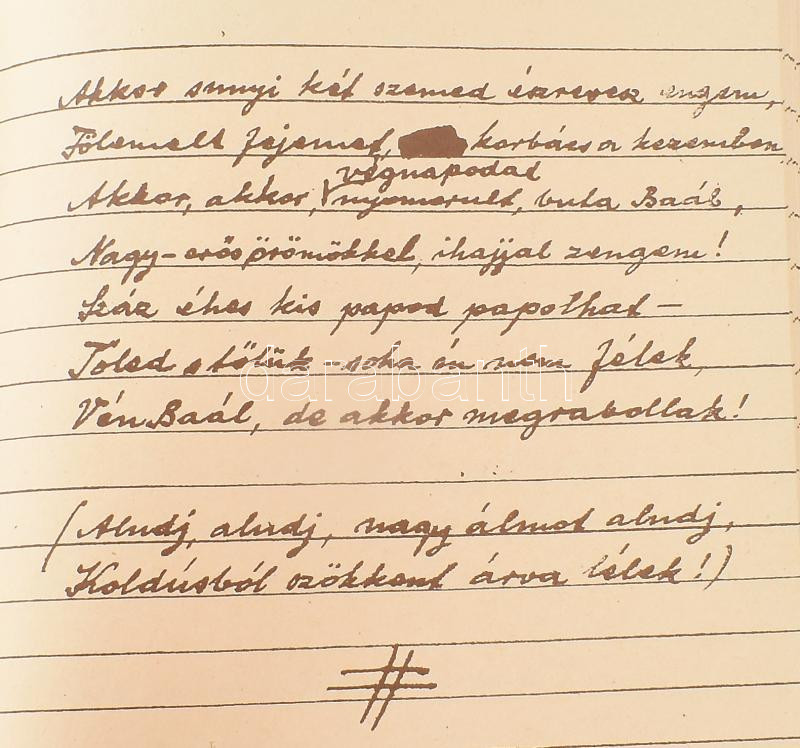 Akkor sunyi két szemed észrevesz engem,
Fölemelt fejemet, korbács a kezemben,
végnapodat
Akkor, akkor, nyomorult, buta Baál,
Nagy-erős örömökkel, ihajjal zengem!
Száz éhes kis papod papolhat -
Toled s tőlük - soha én nem félek,
Vén Baál, de akkor megrabollak!
(Aludj, aludj, nagy álmot aludj,
Koldúsból szökkent árva lélek!)
darabanth